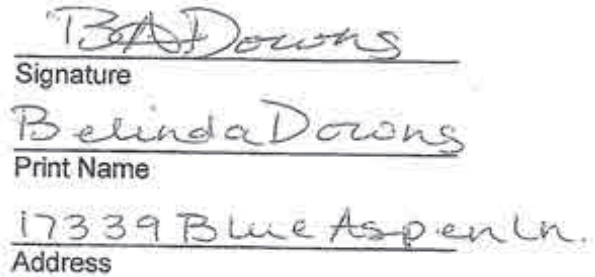 BADowns
Signature
Belinda Downs
Print Name
17339 Blue Aspen Ln.
Address